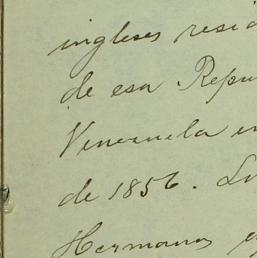 ingleses resid
de esa Repu
Venezuela en
de 1856. Lo
Hermanos